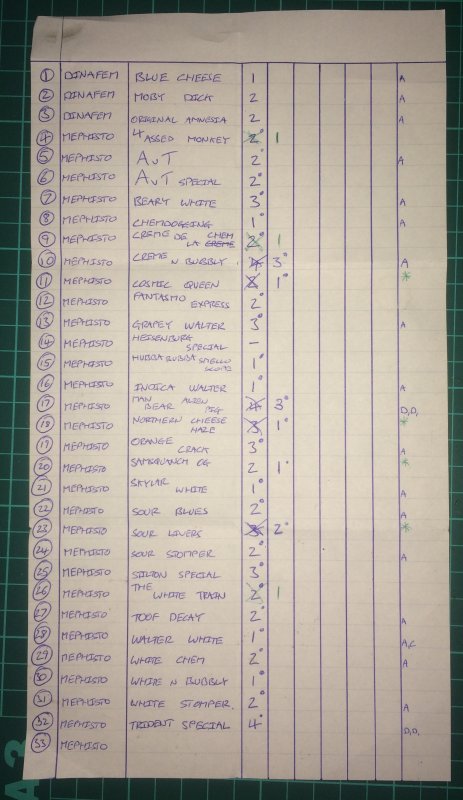 1 DINAFEM BLUE CHEESE 1 A
2 DINAFEM MOBY DICK 2 A
3 DINAFEM ORIGINAL AMNESIA 2 A
4 MEPHISTO 4 ASSED MONKEY 2° 1
5 MEPHISTO AVT 2° A
6 MEPHISTO AVT SPECIAL 2°
7 MEPHISTO BEARY WHITE 3° A
8 MEPHISTO CHEMDOGGING 1° A
9 MEPHISTO CREME DE LA CREME CHEM 2° 1
10 MEPHISTO CREME N BUBBLY 4 3° A
11 MEPHISTO COSMIC QUEEN 2 1° *
12 MEPHISTO FANTASMO EXPRESS 2°
13 MEPHISTO GRAPEY WALTER 3° A
14 MEPHISTO HEISENBURG SPECIAL -
15 MEPHISTO HUBBA BUBBA SMELLO SCOPE 1°
16 MEPHISTO INDICA WALTER 1° A
17 MEPHISTO MAN BEAR ALIEN PIG 4 3° D,D,
18 MEPHISTO NORTHERN CHEESE HAZE 3 1° *
19 MEPHISTO ORANGE CRACK 3° A
20 MEPHISTO SAMSQUANCH OG 2 1° *
21 MEPHISTO SKYLAR WHITE 1° A
22 MEPHISTO SOUR BLUES 2° A
23 MEPHISTO SOUR LIVERS 3 2° *
24 MEPHISTO SOUR STOMPER 2° A
25 MEPHISTO STILTON SPECIAL 3°
26 MEPHISTO THE WHITE TRAIN 2° 1
27 MEPHISTO TOOF DECAY 2° A
28 MEPHISTO WALTER WHITE 1° A,C
29 MEPHISTO WHITE CHEM 2° A
30 MEPHISTO WHITE N BUBBLY 1°
31 MEPHISTO WHITE STOMPER. 2° A
32 MEPHISTO TRIDENT SPECIAL 4° D,D,
33 MEPHISTO
A3